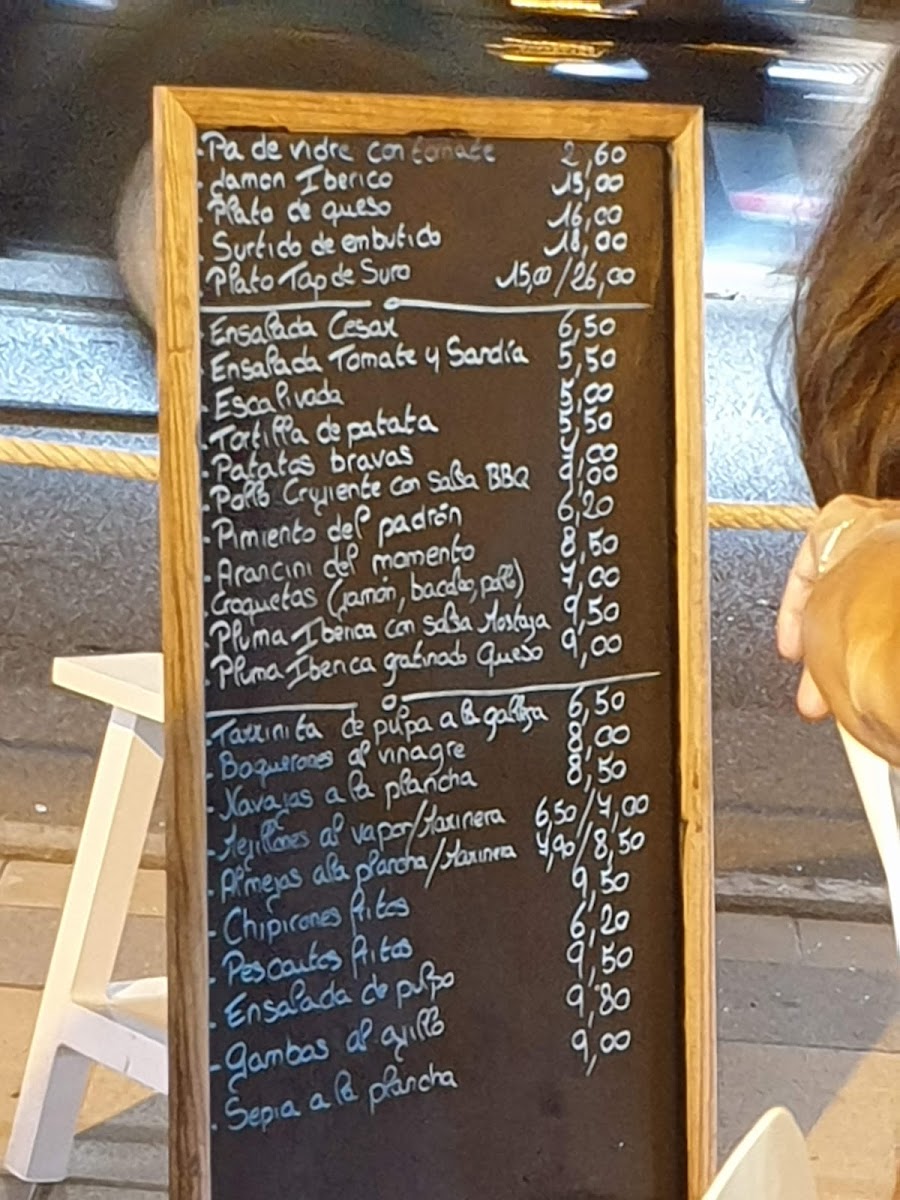 .Pa de vidre con tomate 2,60
.Jamon Iberico 15,00
.Plato de queso 16,00
.Surtido de embutido 18,00
.Plato Tap de Suro 15,00/26,00
.Ensalada Cesar 6,50
.Ensalada Tomate y Sandía 5,50
.Escalivada 5,00
.Tortilla de patata 5,50
.Patatas bravas
.Pollo Crujiente con salsa BBQ 9,00
.Pimiento del padrón 6,20
.Arancini del momento 8,50
.Croquetas (jamón, bacalao, pollo) 7,00
.Pluma Iberica con salsa Mostaza 9,50
.Pluma Iberica gratinado Queso 9,00
.Tarrinita de pulpa a la gallega 6,50
.Boquerones al vinagre 8,00
.Navajas a la plancha 8,50
.Mejillones al vapor/Marinera 6,50/7,00
.Almejas a la plancha/Marinera 7,90/8,50
.Chipirones fritos 9,50
.Pescaitos fritos 6,20
.Ensalada de pulpo 9,50
.Gambas al ajillo 9,80
.Sepia a la plancha 9,00